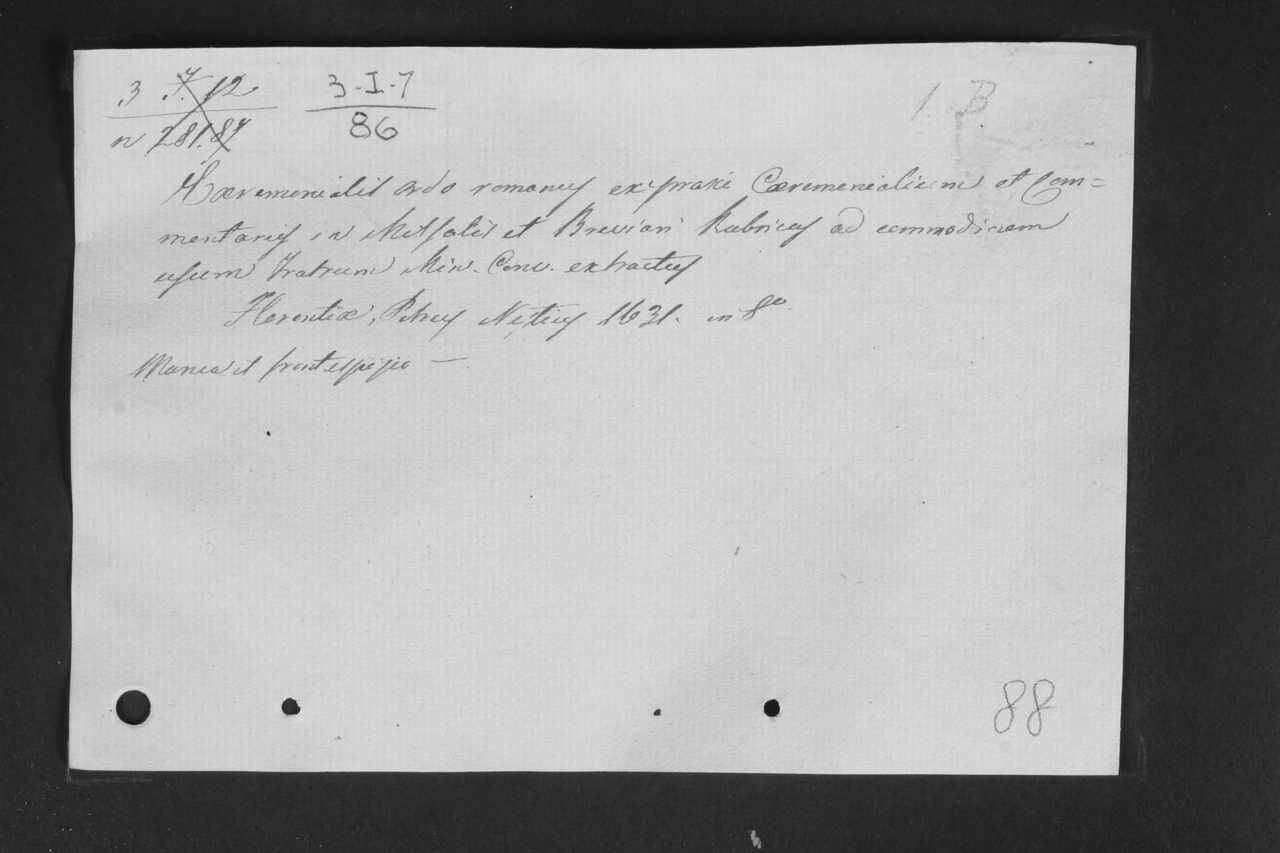 3 7.12 3-I-7
n 281.87 86
1. B
Cæremonialis ordo romanus ex praxi Cæremonialium et Com=
mentariis in Missalis et Breviari Rubricas ad commodiorem
usum Fratrum Min. Conv. extractus
Florentiæ, Petrus Nestius 1631. in 8º
Manca il frontespizio —
88